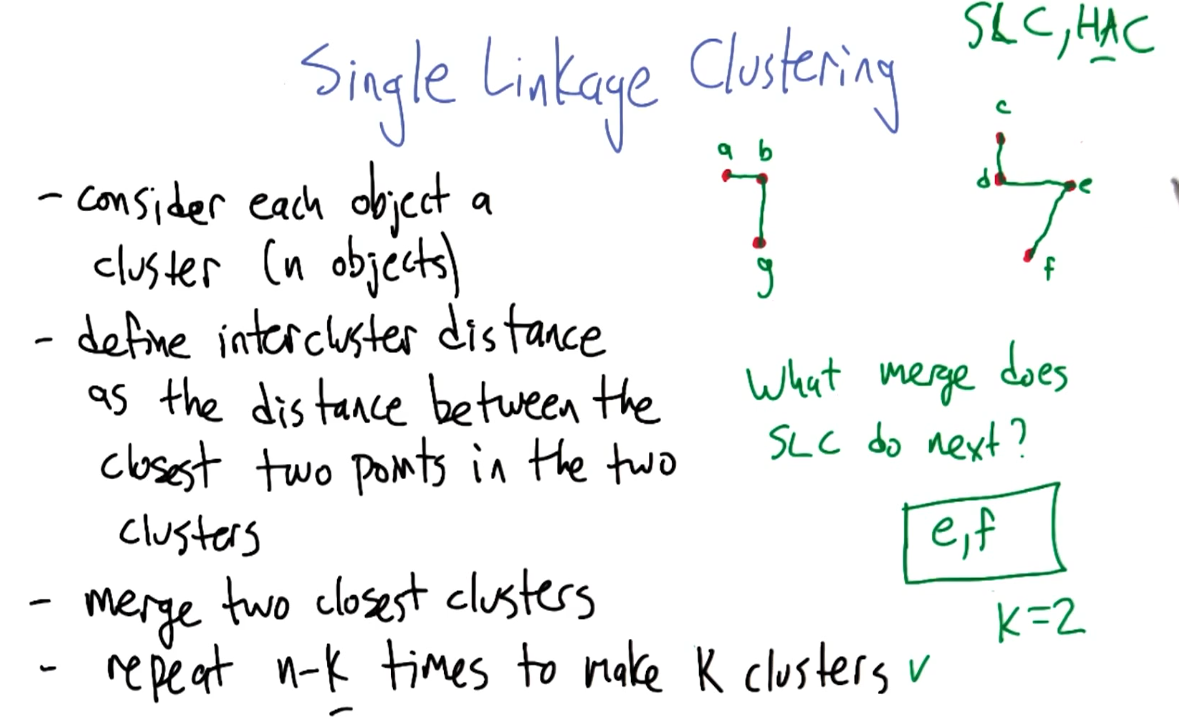 SLC, HAC
Single Linkage Clustering
- consider each object a
cluster (n objects)
- define intercluster distance
as the distance between the
closest two points in the two
clusters
- merge two closest clusters
- repeat n-k times to make K clusters ✓
a b
g
c
d e
f
What merge does
SLC do next?
e,f
K=2